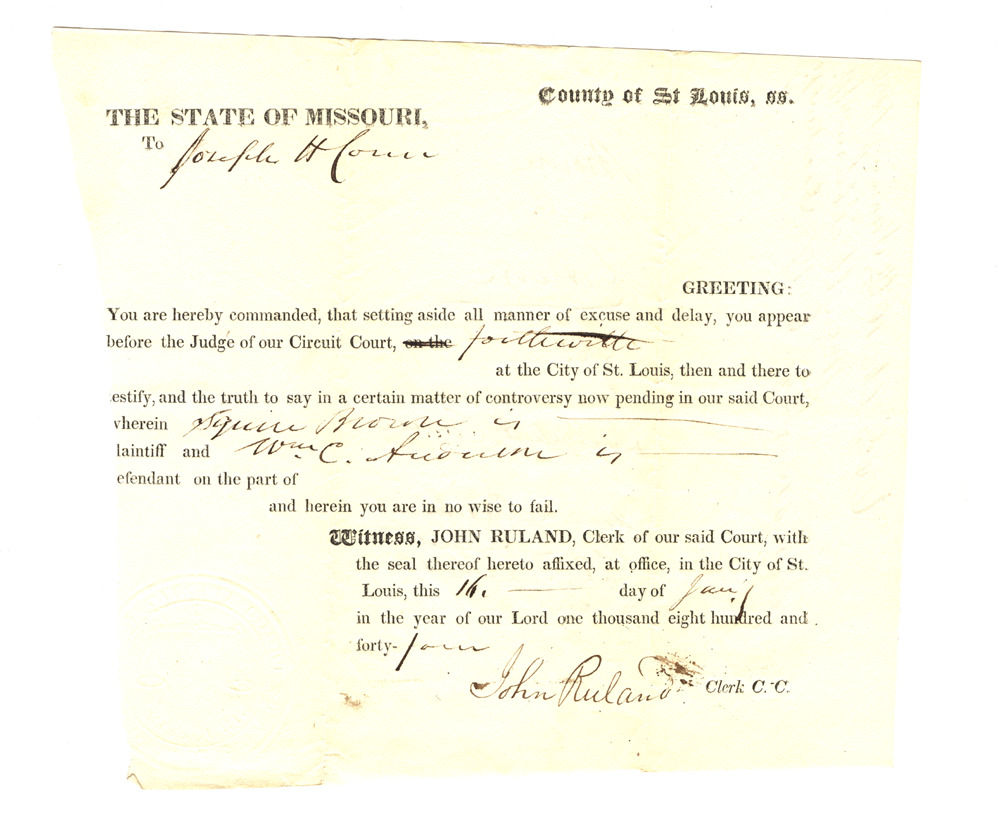 County of St Louis, ss.
THE STATE OF MISSOURI,
To Joseph H Conn
GREETING:
You are hereby commanded, that setting aside all manner of excuse and delay, you appear
before the Judge of our Circuit Court, on the forthwith
at the City of St. Louis, then and there to
estify, and the truth to say in a certain matter of controversy now pending in our said Court,
wherein Squire Brown is
laintiff and Wm C. Anderson is
efendant on the part of
and herein you are in no wise to fail.
Witness, JOHN RULAND, Clerk of our said Court, with
the seal thereof hereto affixed, at office, in the City of St.
Louis, this 16. day of Jany
in the year of our Lord one thousand eight hundred and
forty-four
John Ruland Clerk C. C.